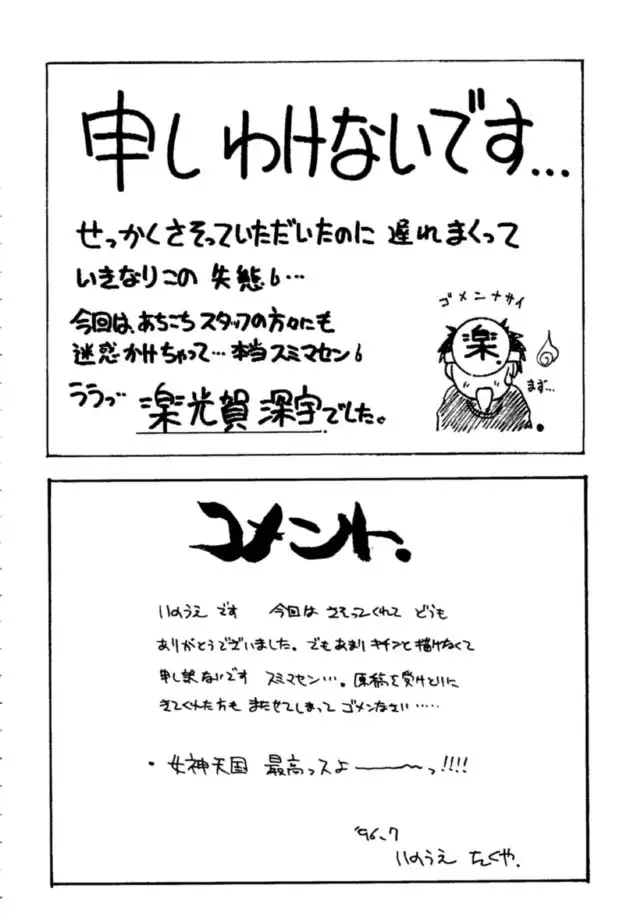 申しわけないです...
せっかくさそっていただいたのに 遅れまくって
いきなりこの 失態6…
今回は、あちこちスタッフの方々にも
迷惑かけちゃって…本当スミマセン6
ララっ 楽光賀 深宇でした。
ゴメンナサイ
楽
まず…
コメント.
いのうえ です 今回は さそってくれて どうも
ありがとうございました。でもあまり キチンと描けなくて
申し訳ないです スミマセン…。原稿を受けとりに
きてくれた方も またせてしまって ゴメンなさい……
・女神天国 最高っスよ――〜っ!!!!
'96.7
いのうえ たくや.